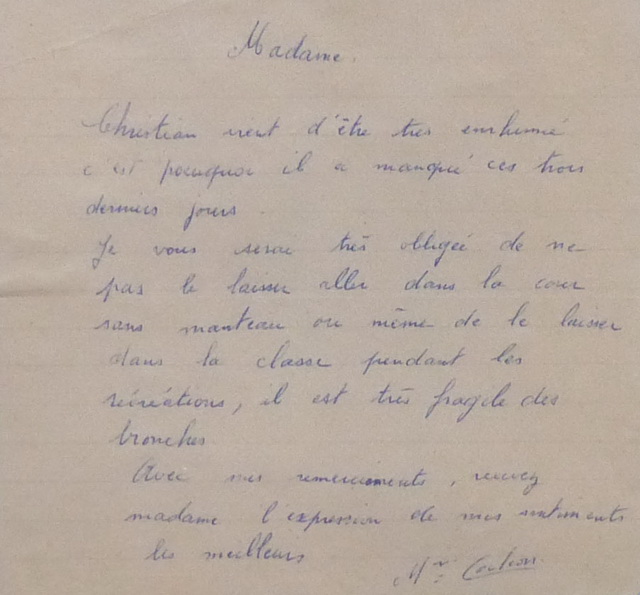 Madame.
Christian vient d'être très enrhumé
c'est pourquoi il a manqué ces trois
derniers jours.
Je vous serai très obligée de ne
pas le laisser aller dans la cour
sans manteau ou même de le laisser
dans la classe pendant les
récréations, il est très fragile des
bronches
Avec mes remerciements, recevez
madame l'expression de mes sentiments
les meilleurs
Mme